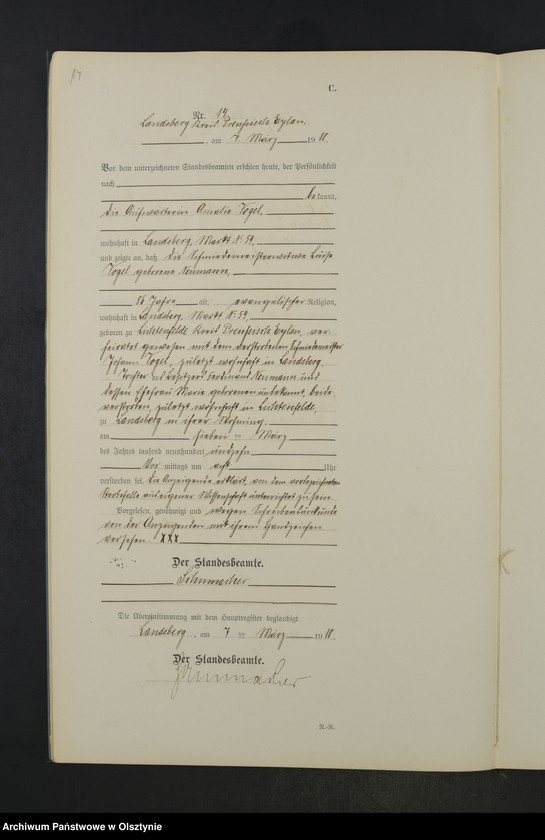 14
C.
Nr. 14
Landsberg Kreis Preußisch Eylau
, am 7. März 1911.
Vor dem unterzeichneten Standesbeamten erschien heute, der Persönlichkeit
nach
bekannt,
die Aufwärterin Amalie Vogel,
wohnhaft in Landsberg, Markt N. 59,
und zeigte an, daß die Schmiedemeisterwitwe Luise
Vogel geborene Neumann,
86 Jahre alt, evangelischer Religion,
wohnhaft in Landsberg, Markt N. 59,
geboren zu Lichtenfelde Kreis Preußisch Eylau, ver-
heiratet gewesen mit dem verstorbenen Schmiedemeister
Johann Vogel, zuletzt wohnhaft in Landsberg,
Tochter des Besitzers Ferdinand Neumann und
dessen Ehefrau Marie geborenen unbekannt, beide
verstorben, zuletzt wohnhaft in Lichtenfelde,
zu Landsberg in ihrer Wohnung,
am sieben ten März
des Jahres tausend neunhundert und zehn
Vor mittags um acht Uhr
verstorben sei. Die Anzeigende erklärt, von dem
Sterbefalle aus eigener Wissenschaft unterrichtet zu sein.
Vorgelesen, genehmigt und wegen Schreibensunkunde
von der Anzeigenden mit ihrem Handzeichen
versehen. XXX
Der Standesbeamte.
Schumacher
Die Übereinstimmung mit dem Hauptregister beglaubigt
Landsberg, am 7 ten März 1911.
Der Standesbeamte.
Schumacher
Archiwum Państwowe w Olsztynie